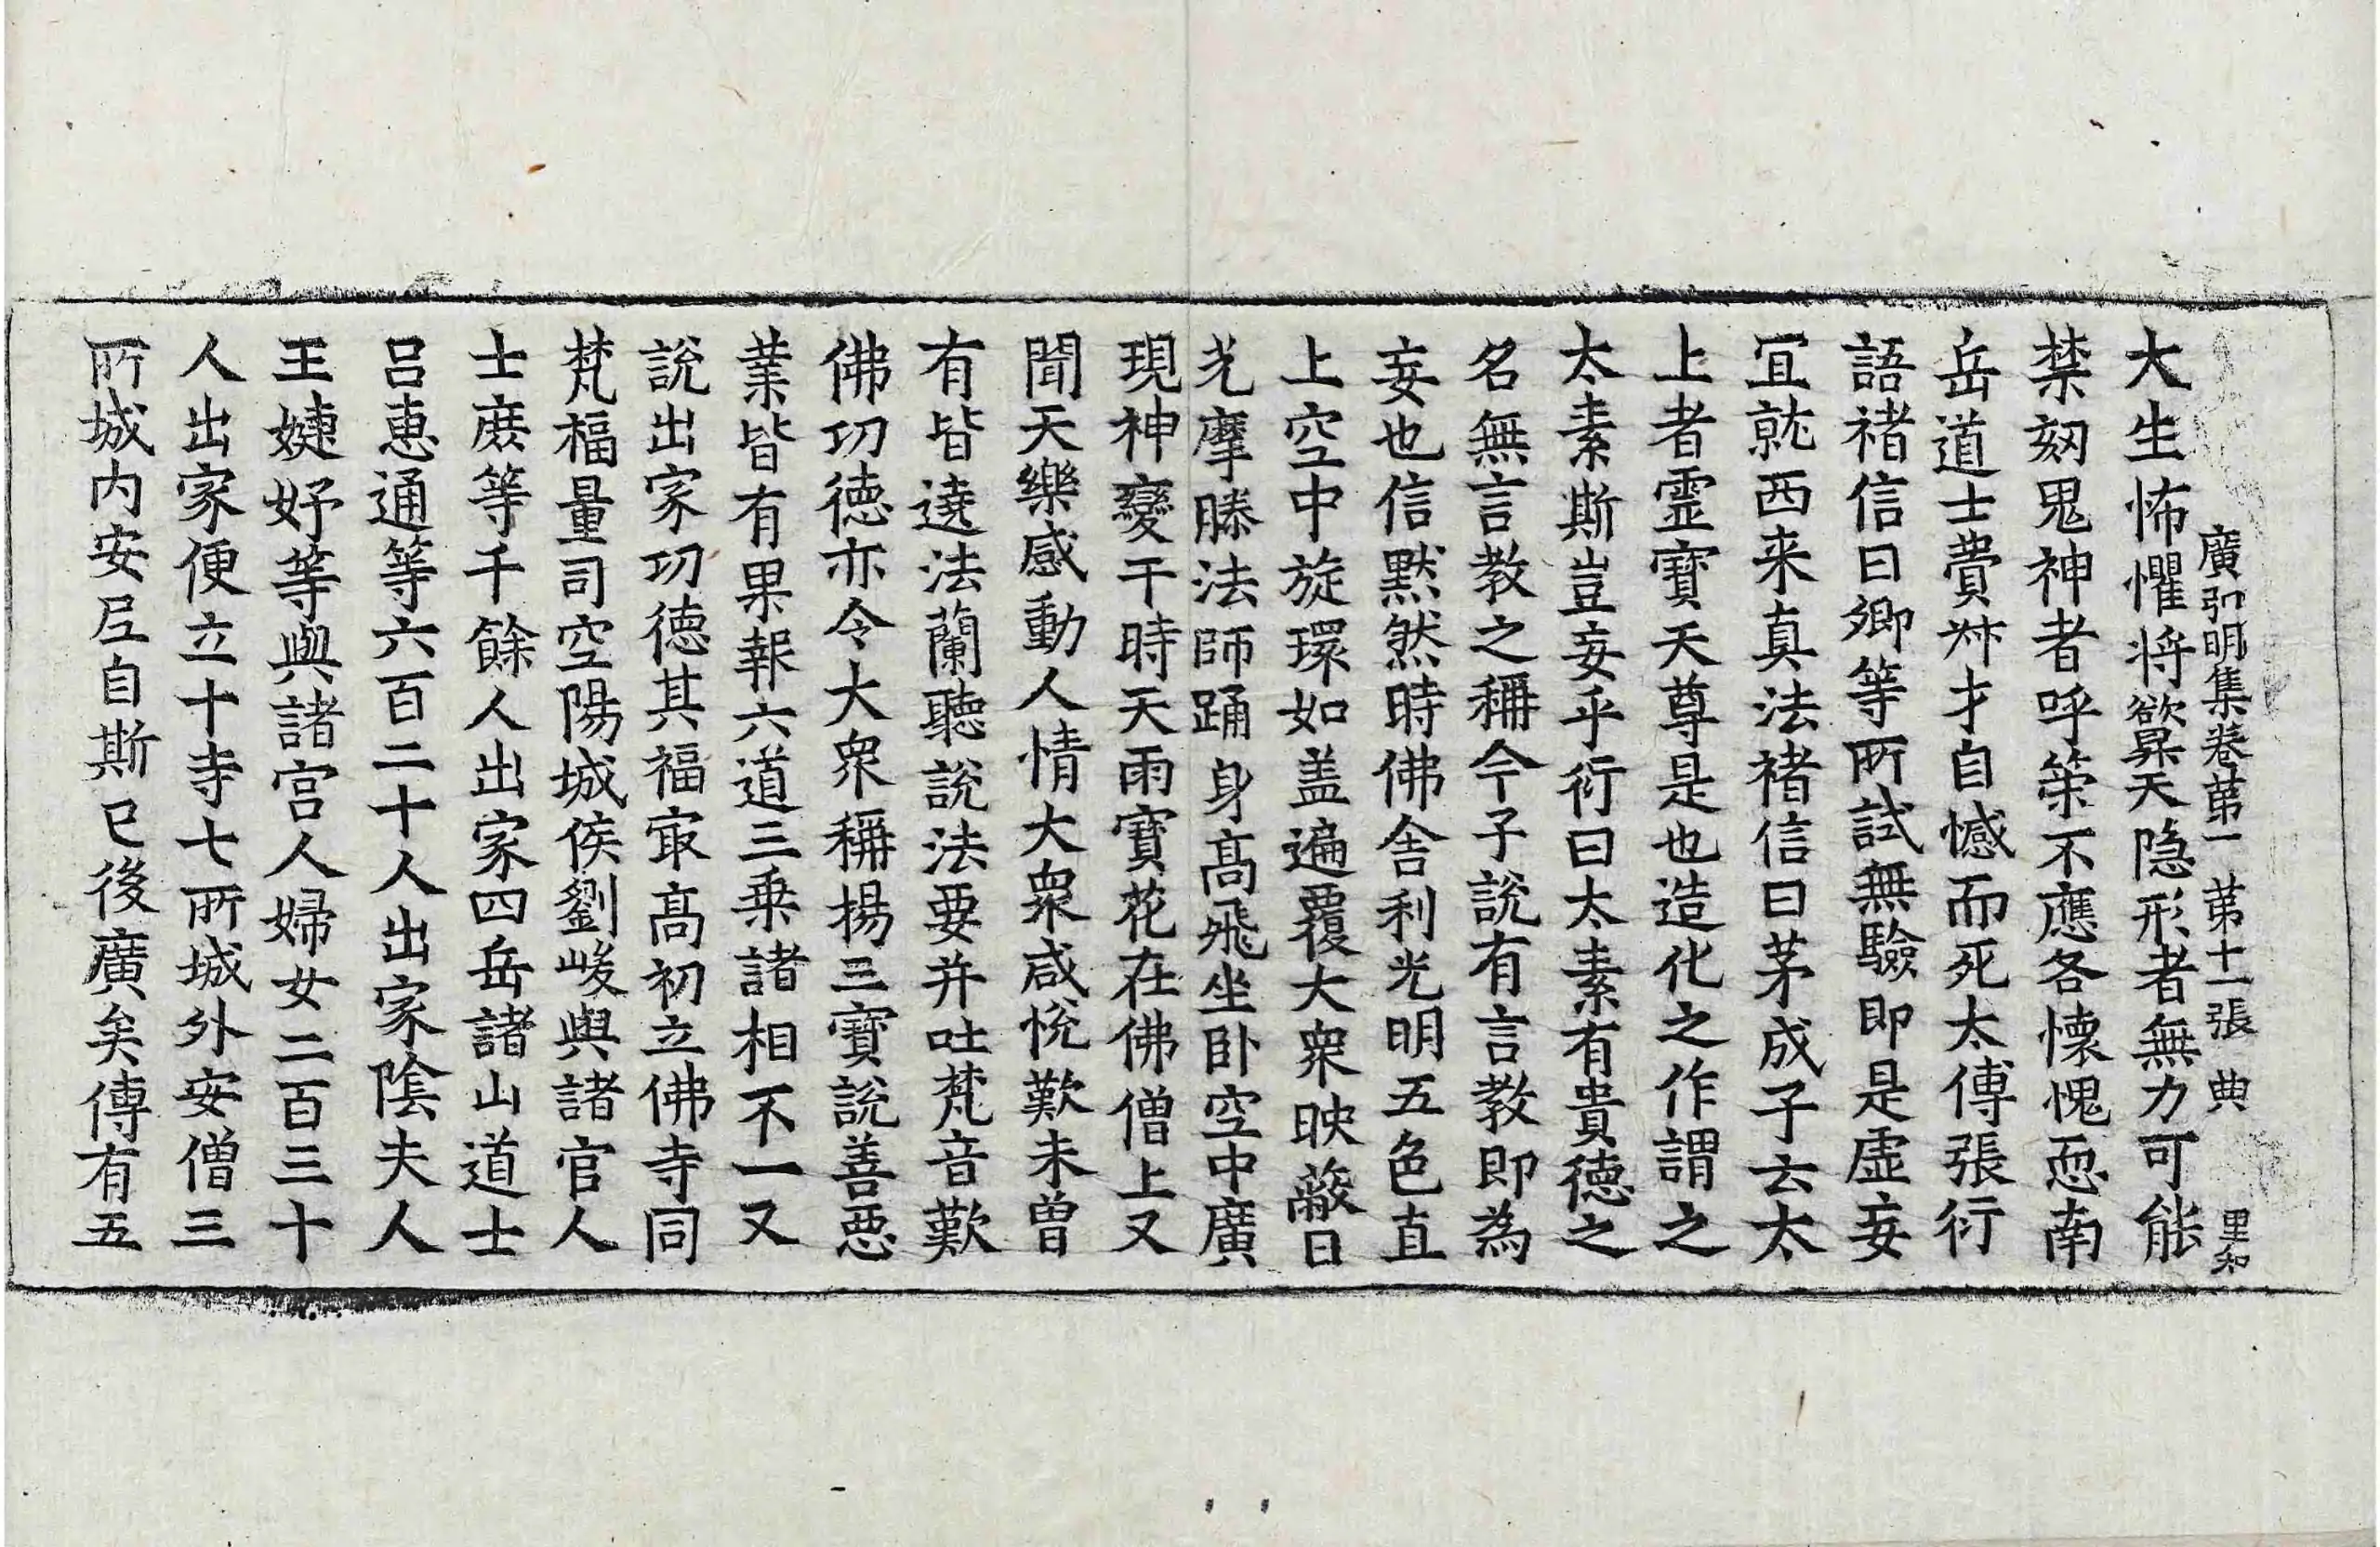 廣弘明集卷第一 第十一張 典 里和
大生怖懼將欲昇天隐形者無力可能
禁劾鬼神者呼策不應各懷愧恧南
岳道士費林才自憾而死太傅張衍
語褚信曰卿等所試無驗即是虛妄
冝就西来真法褚信曰茅成子云太
上者霊寶天尊是也造化之作謂之
太素斯豈妄乎衍曰太素有貴德之
名無言教之稱今子說有言教即為
妄也信黙然時佛舍利光明五色直
上空中旋環如盖遍覆大衆映蔽日
光摩騰法師踊身高飛坐卧空中廣
現神變干時天雨寶花在佛僧上又
聞天樂感動人情大衆咸悅歎未曾
有皆遶法蘭聽說法要并吐梵音歎
佛功德亦令大衆稱揚三寶說善惡
業皆有果報六道三乗諸相不一又
說出家功德其福冣高初立佛寺同
梵福量司空陽城侯劉峻與諸官人
士庶等千餘人出家四岳諸山道士
吕惠通等六百二十人出家陰夫人
王婕妤等與諸宮人婦女二百三十
人出家便立十寺七所城外安僧三
所城内安尼自斯已後廣矣傳有五